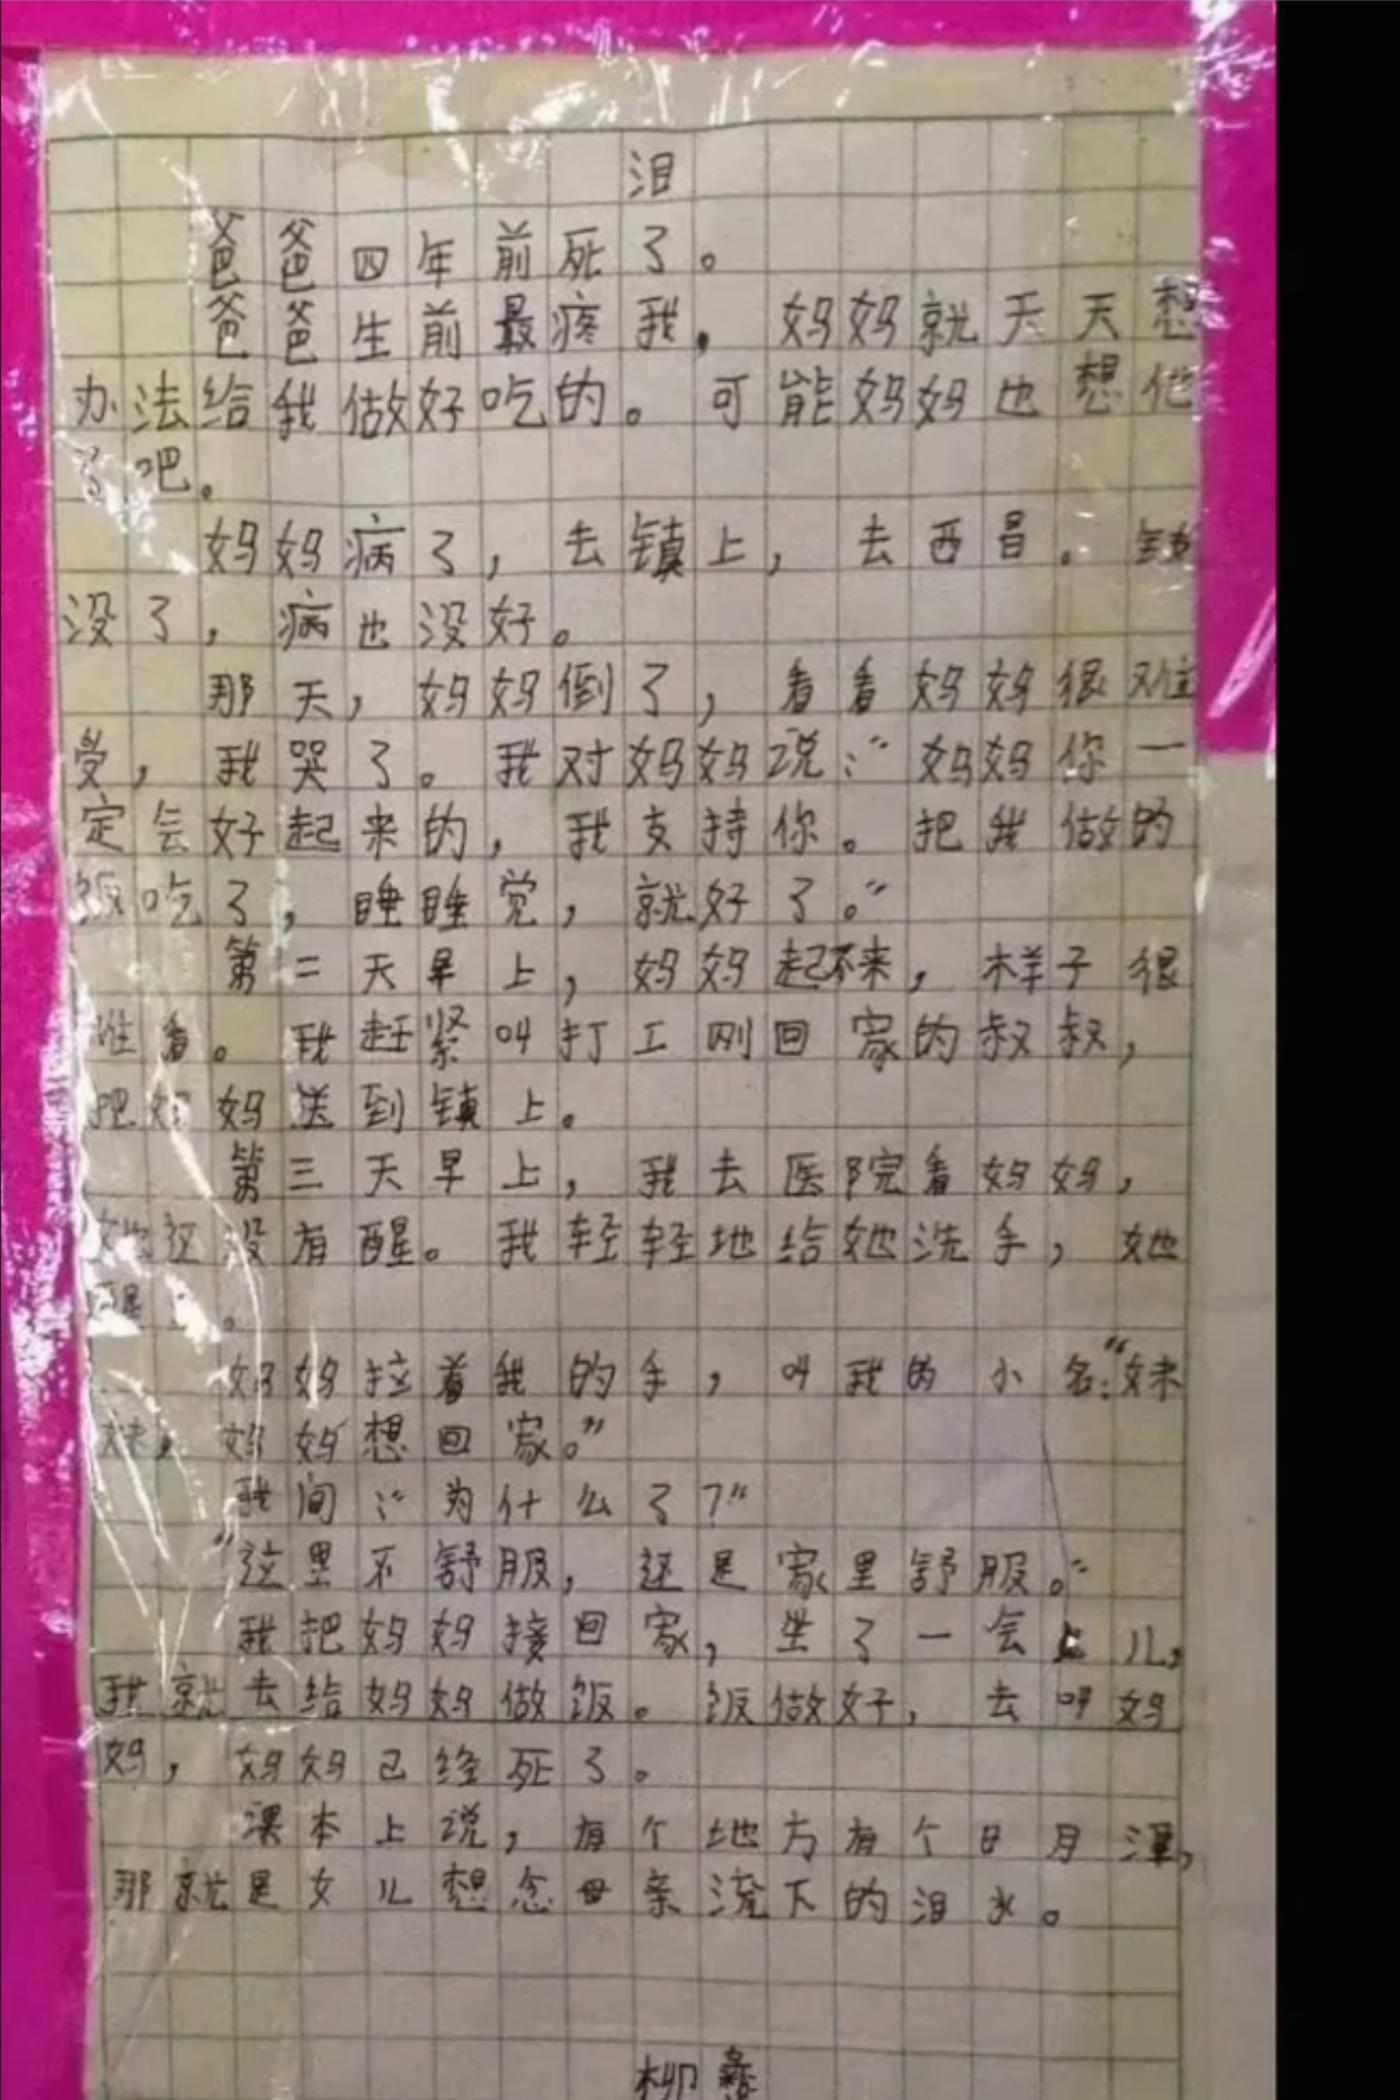 泪
爸爸四年前死了。
爸爸生前最疼我,妈妈就天天想
办法给我做好吃的。可能妈妈也想他
了吧。
妈妈病了,去镇上,去西昌。钱
没了,病也没好。
那天,妈妈倒了,看看妈妈很难
受,我哭了。我对妈妈说:“妈妈你一
定会好起来的,我支持你。把我做的
饭吃了,睡睡觉,就好了。”
第二天早上,妈妈起不来,样子很
难看。我赶紧叫打工刚回家的叔叔,
把妈妈送到镇上。
第三天早上,我去医院看妈妈,
她还没有醒。我轻轻地给她洗手,她
醒了。
妈妈拉着我的手,叫我的小名:“妹
妹,妈妈想回家。”
我问:“为什么了?”
“这里不舒服,还是家里舒服。”
我把妈妈接回家,坐了一会儿,
我就去给妈妈做饭。饭做好,去叫妈
妈,妈妈已经死了。
课本上说,有个地方有个日月潭,
那就是女儿想念母亲流下的泪水。
柳彝